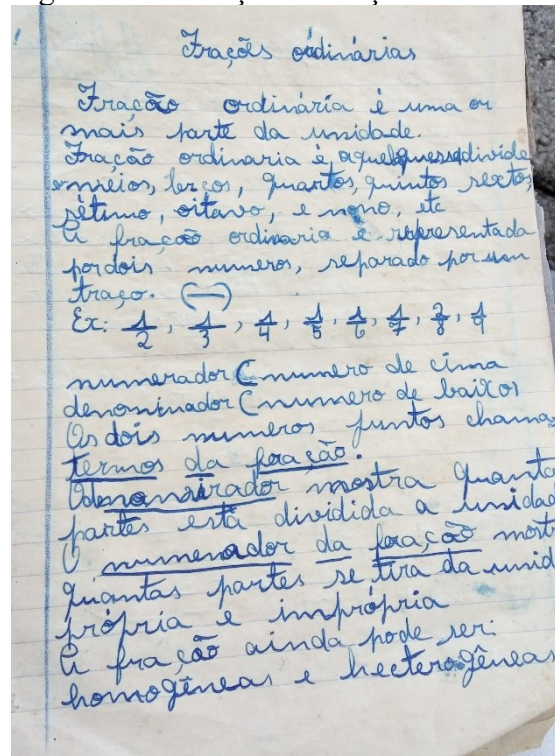 Frações ordinárias
Fração ordinária é uma ou
mais parte da unidade.
Fração ordinaria é, aquelquesedivide
emmeios, terços, quartos, quintos sexto,
sétimo, oitavo, e nono, etc
A fração ordinaria é representada
pordois numeros, separado por um
traço. (—)
Ex: 1/2, 1/3, 1/4, 1/5, 1/6, 1/7, 2/8, 1/9
numerador (numero de cima
denominador (numero de baixo)
Os dois numeros juntos chama
termos da fração.
O denominador mostra quanta
partes está dividida a unidad
O numerador da fração mostr
quantas partes se tira da unid
própria e imprópria
A fração ainda pode ser:
homogêneas e hecterogêneas